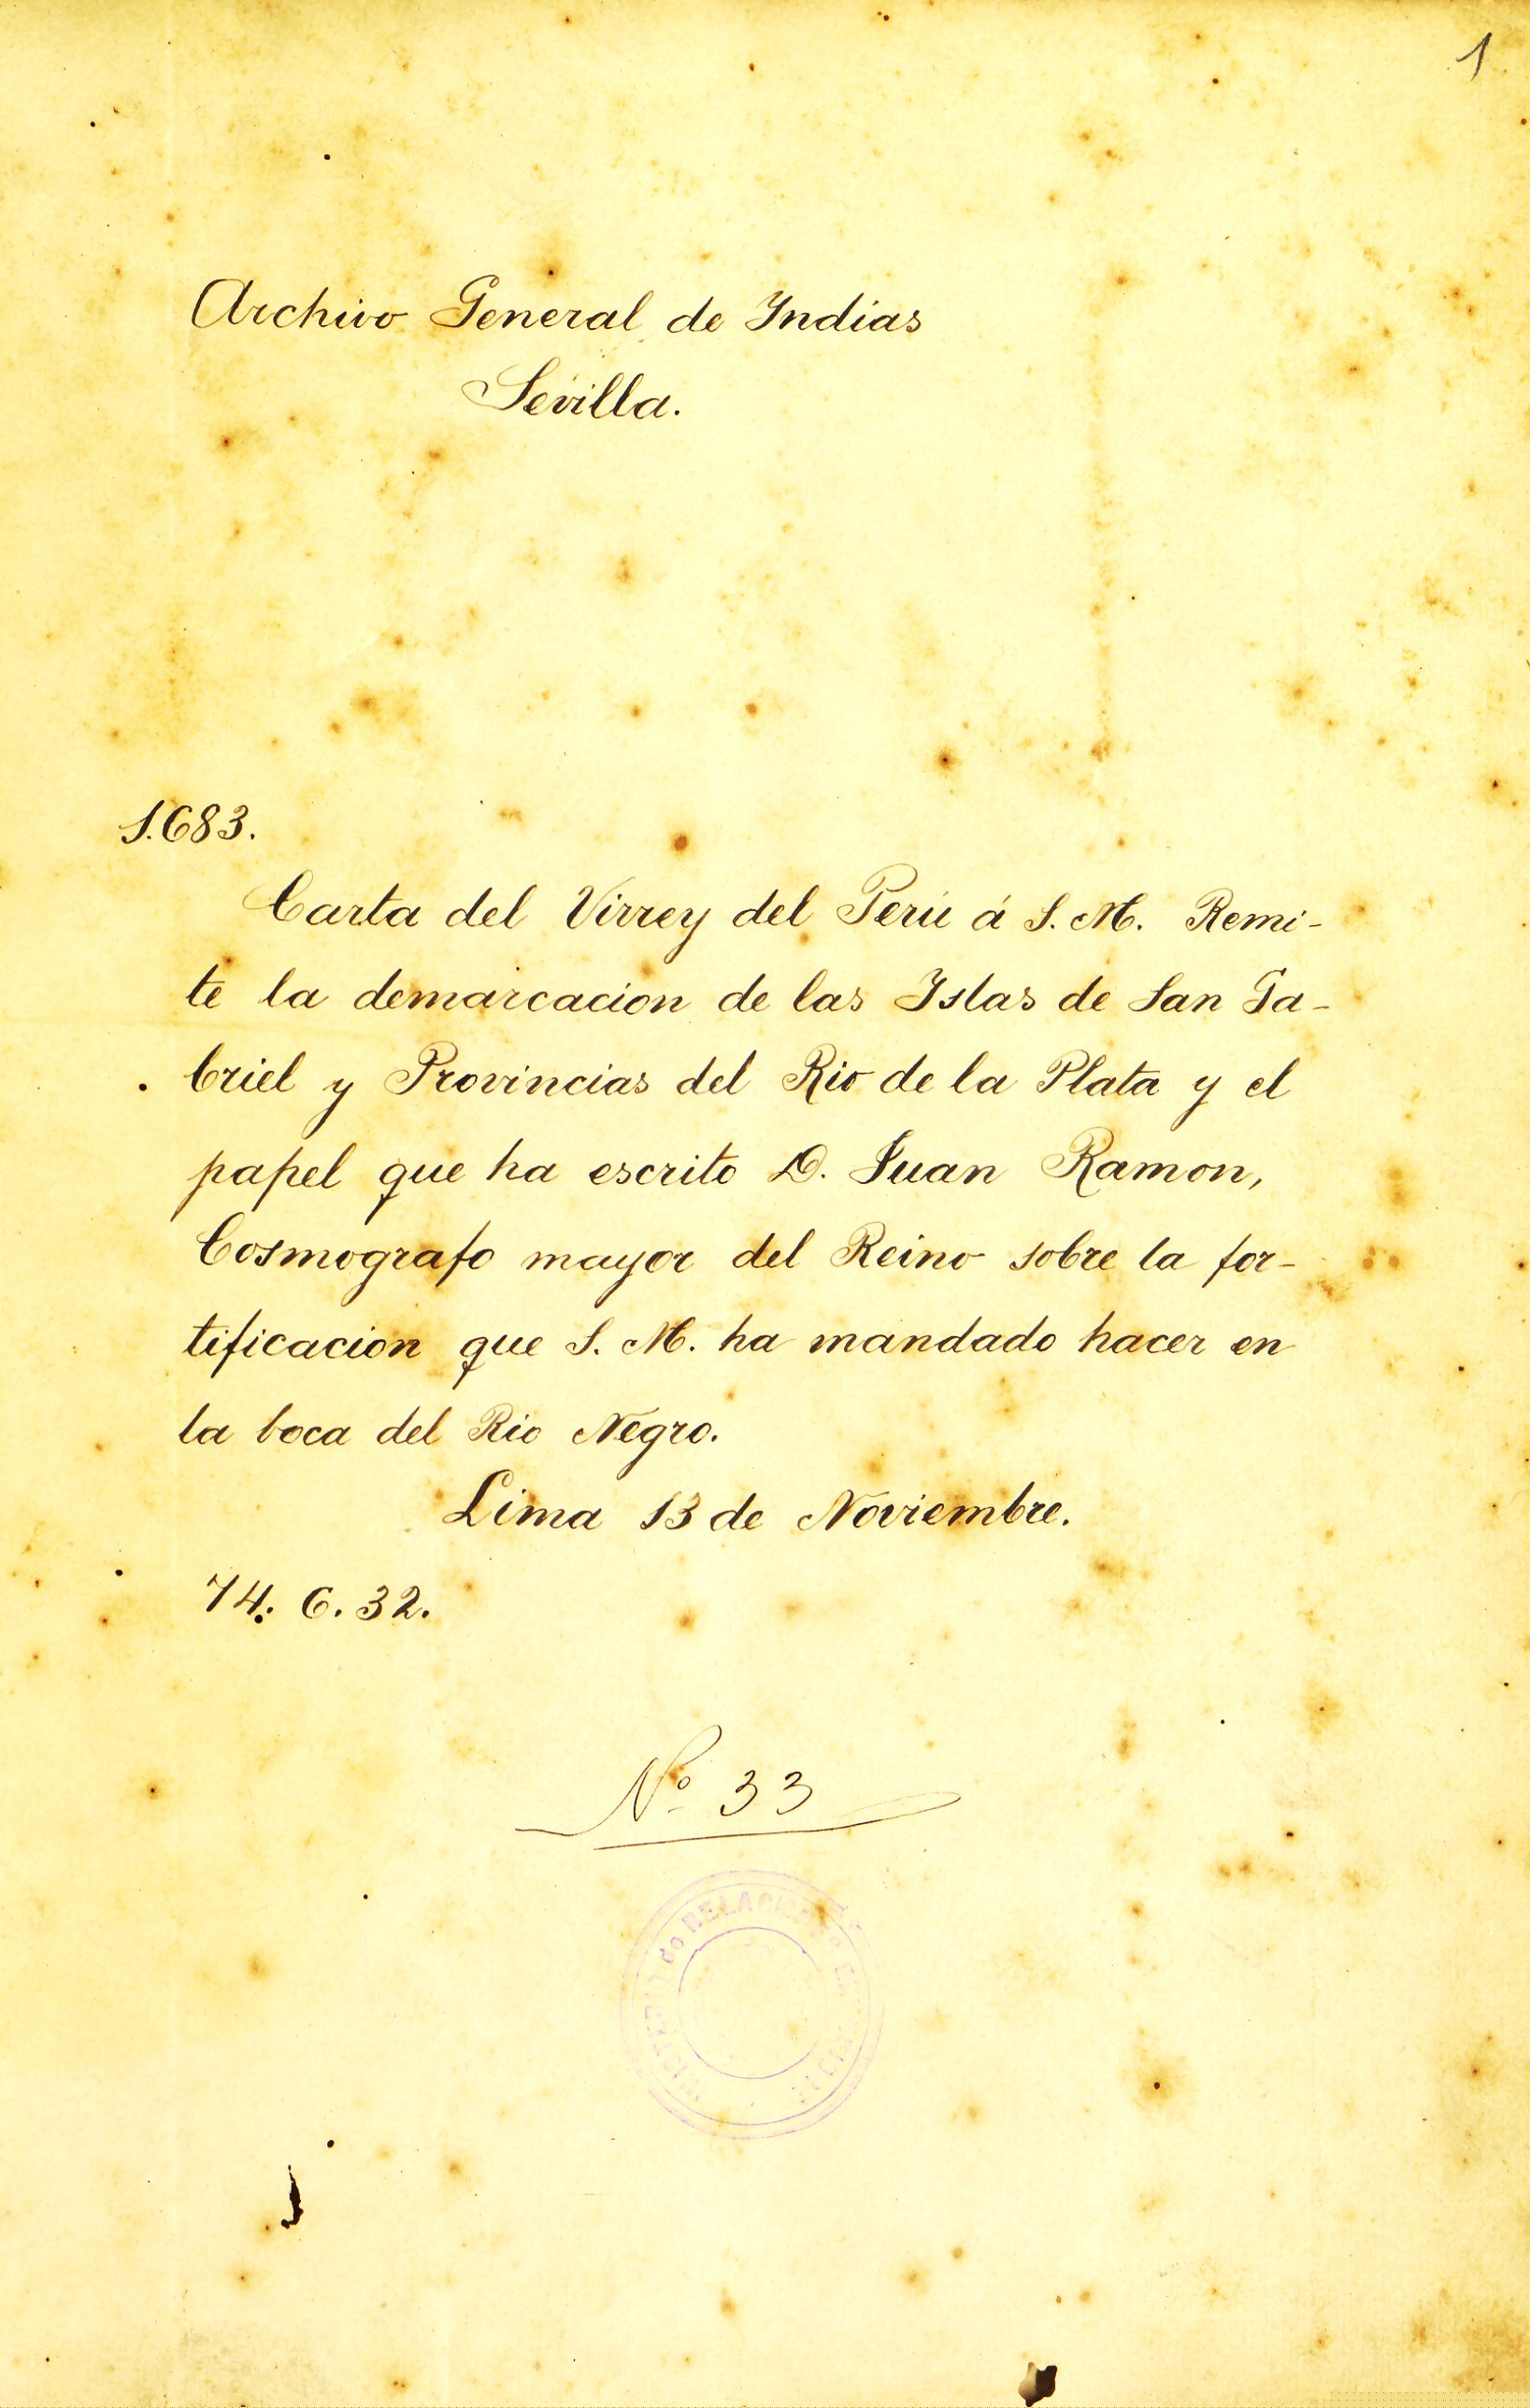 1
Archivo General de Indias
Sevilla.
1.683.
Carta del Virrey del Perú á S. M. Remi-
te la demarcacion de las Islas de San Ga-
briel y Provincias del Rio de la Plata y el
papel que ha escrito D. Juan Ramon,
Cosmografo mayor del Reino sobre la for-
tificacion que S. M. ha mandado hacer en
la boca del Rio Negro.
Lima 13 de Noviembre.
74. 6. 32.
Nº 33
de RELACIONES